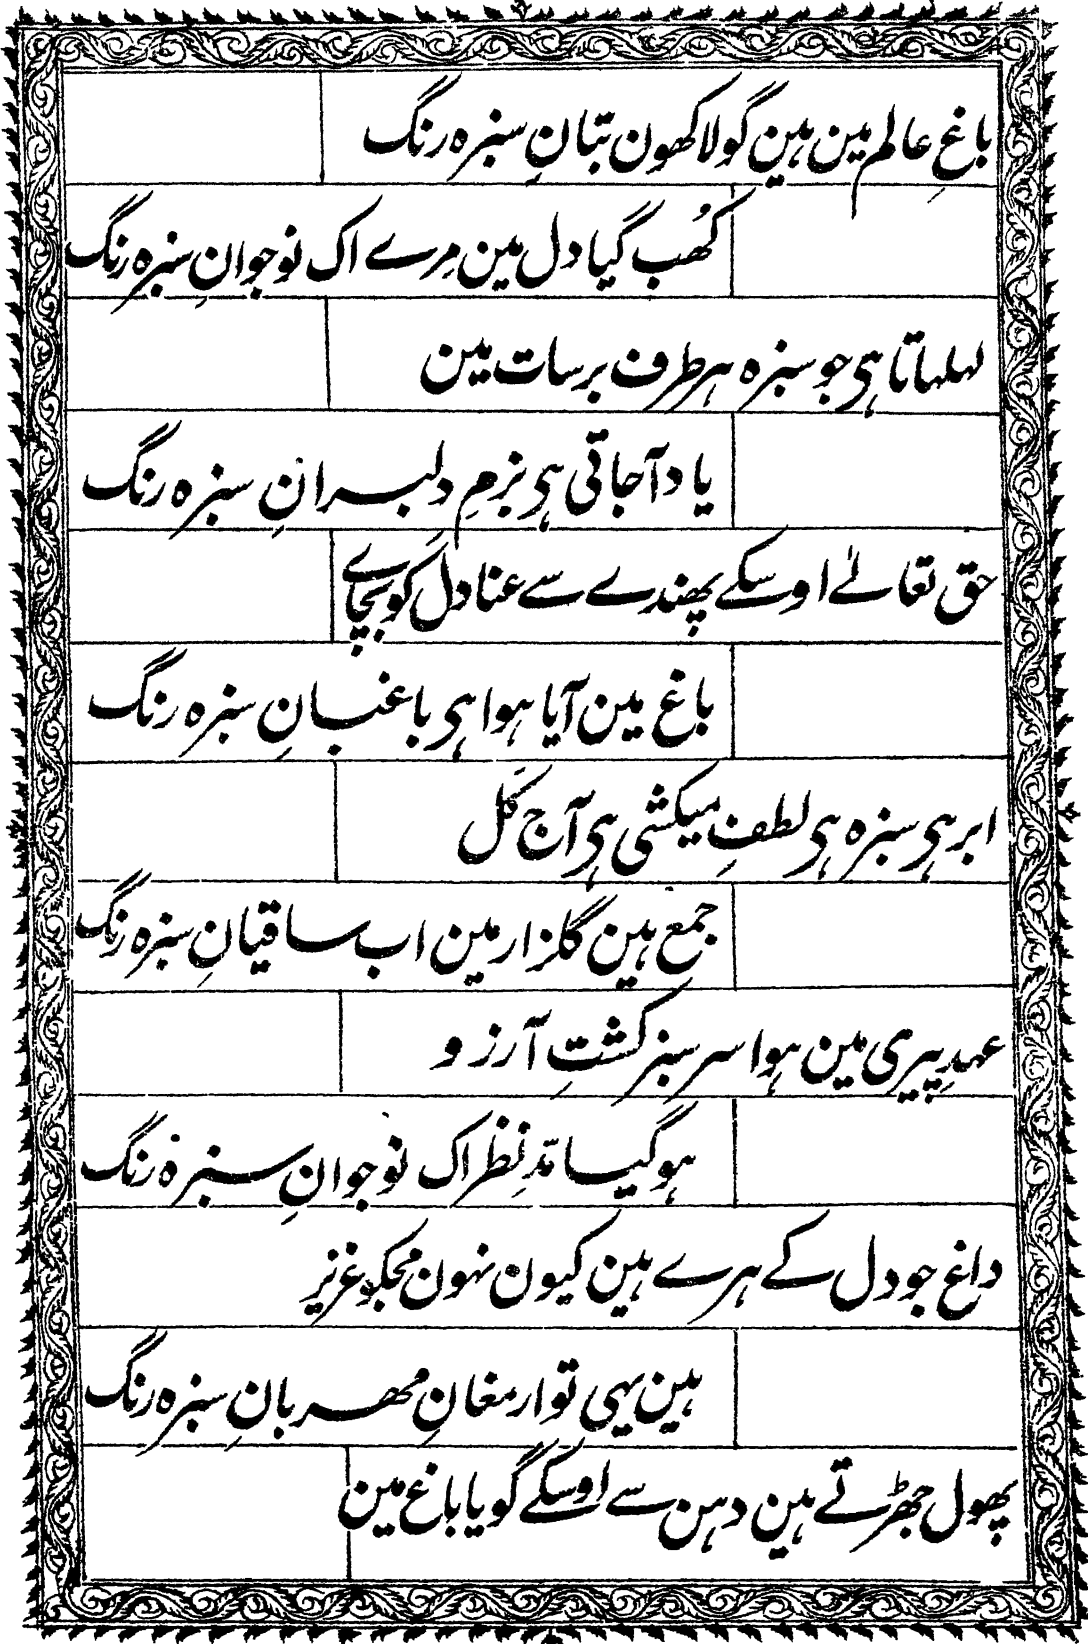 باغِ عالم مین ہین گو لاکھون بتانِ سبزہ رنگ
کُھب گیا دل مین مِرے اک نوجوانِ سبزہ رنگ
لہلہاتا ہی جو سبزہ ہر طرف برسات مین
یاد آجاتی ہی بزمِ دلبرانِ سبزہ رنگ
حق تعالےٰ اوسکے پھندے سے عنادل کو بچاے
باغ مین آیا ہوا ہی باغبانِ سبزہ رنگ
ابر ہی سبزہ ہی لطفِ میکشی ہی آج کَل
جمع ہین گلزار مین اب ساقیانِ سبزہ رنگ
عہدِ پیری مین ہوا سرسبز کشتِ آرزو
ہوگیا مدِّ نظر اک نوجوانِ سبزہ رنگ
داغ جو دل کے ہرے ہین کیون نہون مجکو عزیز
ہین یہی تو ارمغانِ مھربانِ سبزہ رنگ
پھول جھڑتے ہین دہن سے اوسکے گویا باغ مین